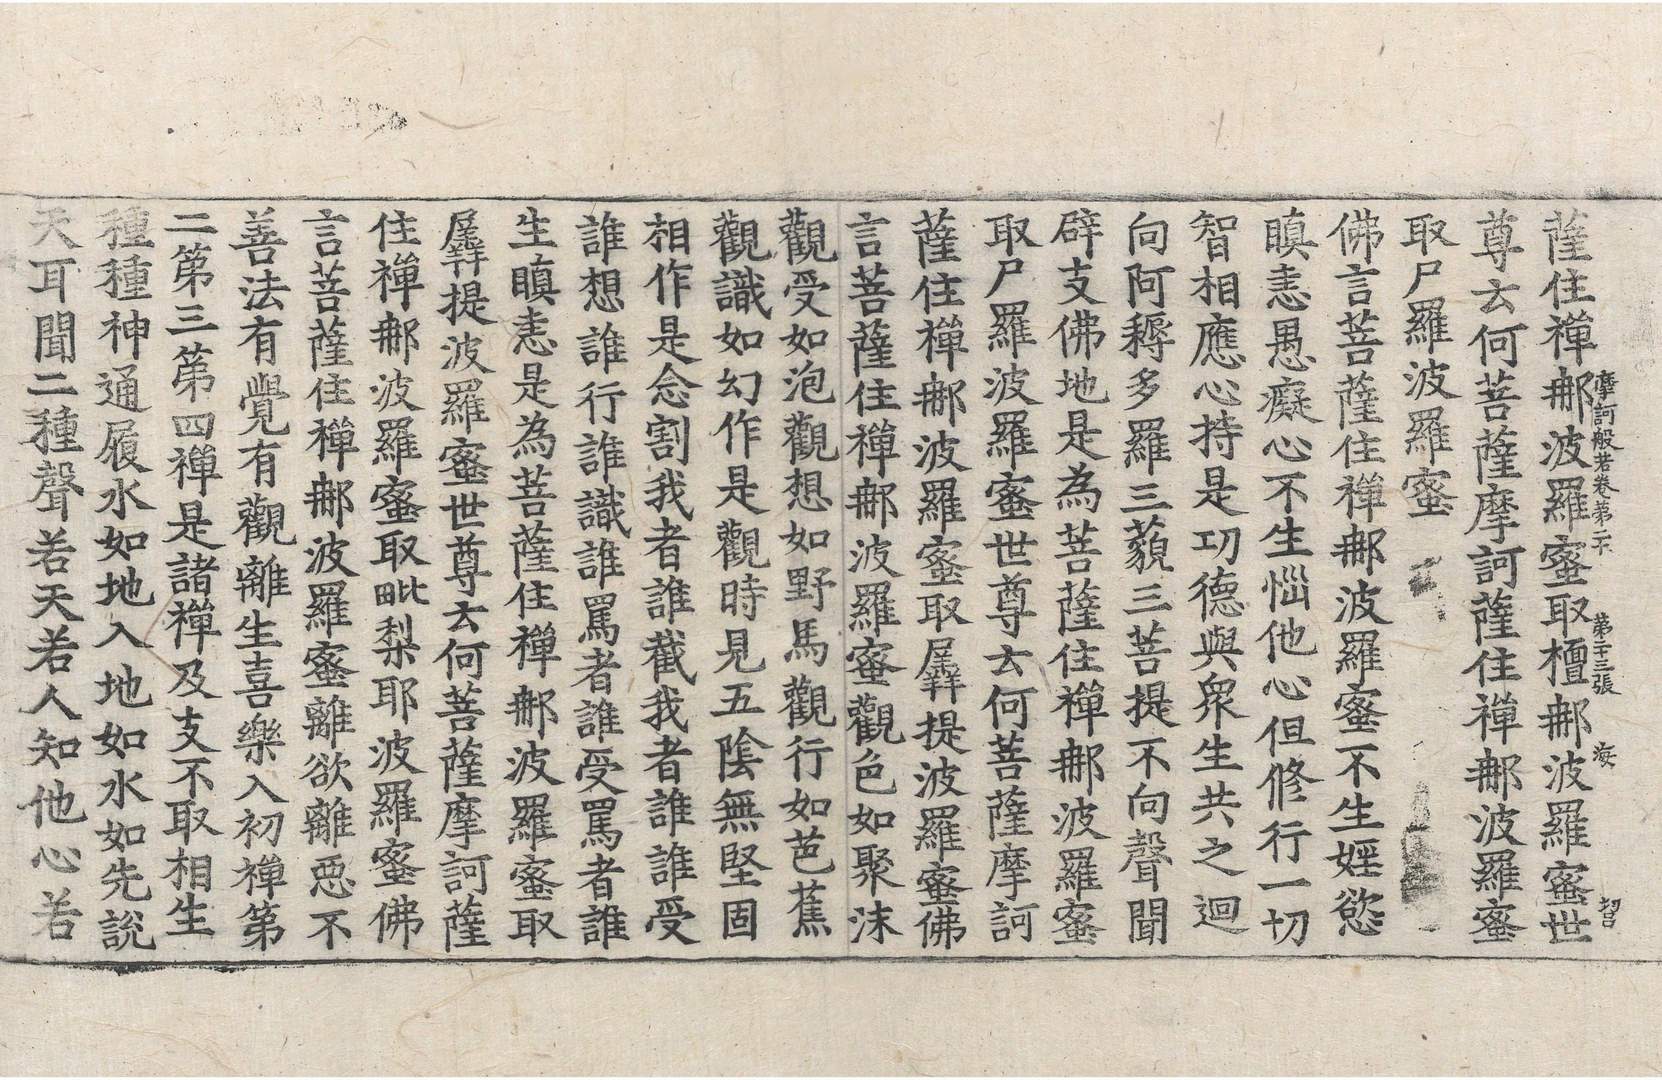 摩訶般若卷第二十 第十三張 海
薩住禪䣭波羅蜜取檀䣭波羅蜜世
尊云何菩薩摩訶薩住禪䣭波羅蜜
取尸羅波羅蜜
佛言菩薩住禪䣭波羅蜜不生婬慾
瞋恚愚癡心不生惱他心但修行一切
智相應心持是功德與衆生共之迴
向阿耨多羅三藐三菩提不向聲聞
辟支佛地是為菩薩住禪䣭波羅蜜
取尸羅波羅蜜世尊云何菩薩摩訶
薩住禪䣭波羅蜜取羼提波羅蜜佛
言菩薩住禪䣭波羅蜜觀色如聚沫
觀受如泡觀想如野馬觀行如芭蕉
觀識如幻作是觀時見五陰無堅固
相作是念割我者誰截我者誰誰受
誰想誰行誰識誰罵者誰受罵者誰
生瞋恚是為菩薩住禪䣭波羅蜜取
羼提波羅蜜世尊云何菩薩摩訶薩
住禪䣭波羅蜜取毗梨耶波羅蜜佛
言菩薩住禪䣭波羅蜜離欲離惡不
善法有覺有觀離生喜樂入初禪第
二第三第四禪是諸禪及支不取相生
種種神通履水如地入地如水如先說
天耳聞二種聲若天若人知他心若